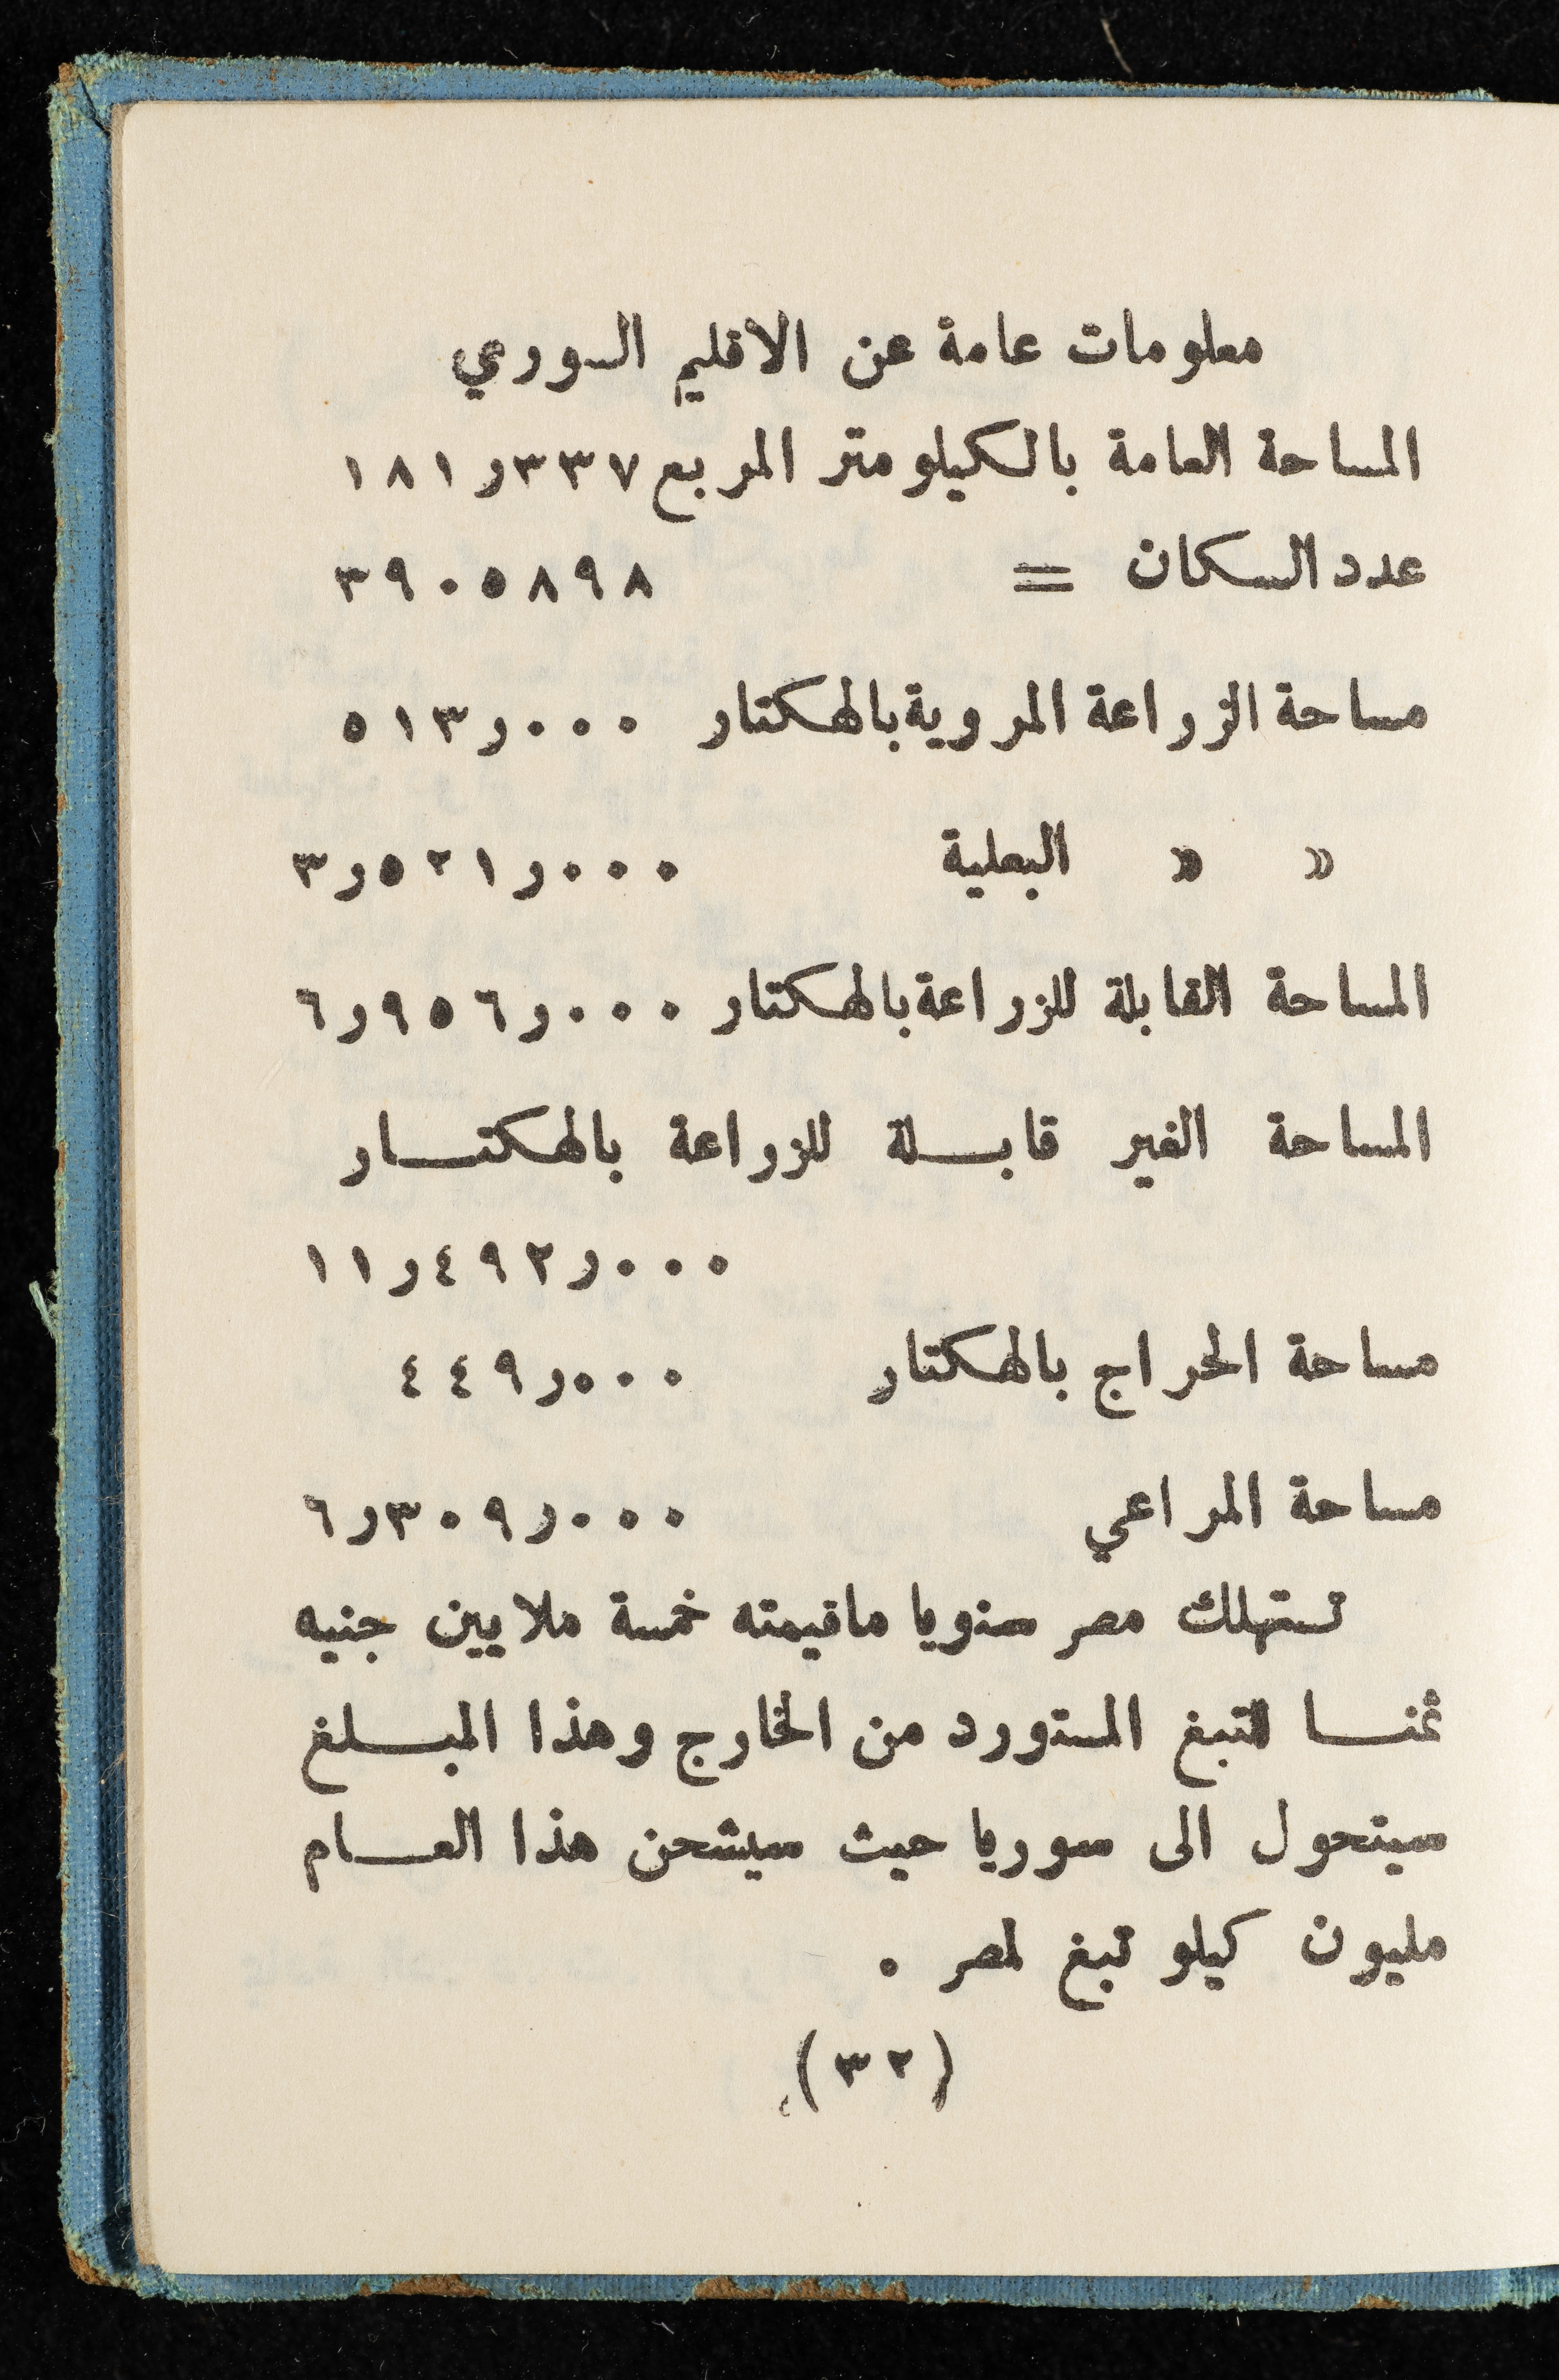 معلومات عامة عن الاقليم السوري
المساحة العامة بالكيلومتر المربع ١٨١ر٣٣٧
عدد السكان = ٣٩٠٥٨٩٨
مساحة الزراعة المروية بالهكتار ٥١٣ر٠٠٠
« « البعلية ٣ر٥٢١ر٠٠٠
المساحة القابلة للزراعة بالهكتار ٦ر٩٥٦ر٠٠٠
المساحة الغير قابلة للزراعة بالهكتار
١١ر٤٩٢ر٠٠٠
مساحة الحراج بالهكتار ٤٤٩ر٠٠٠
مساحة المراعي ٦ر٣٠٩ر٠٠٠
تستهلك مصر سنويا ماقيمته خمسة ملايين جنيه
ثمنا للتبغ المستورد من الخارج وهذا المبلغ
سيتحول الى سوريا حيث سيشحن هذا العام
مليون كيلو تبغ لمصر .
(٣٢)